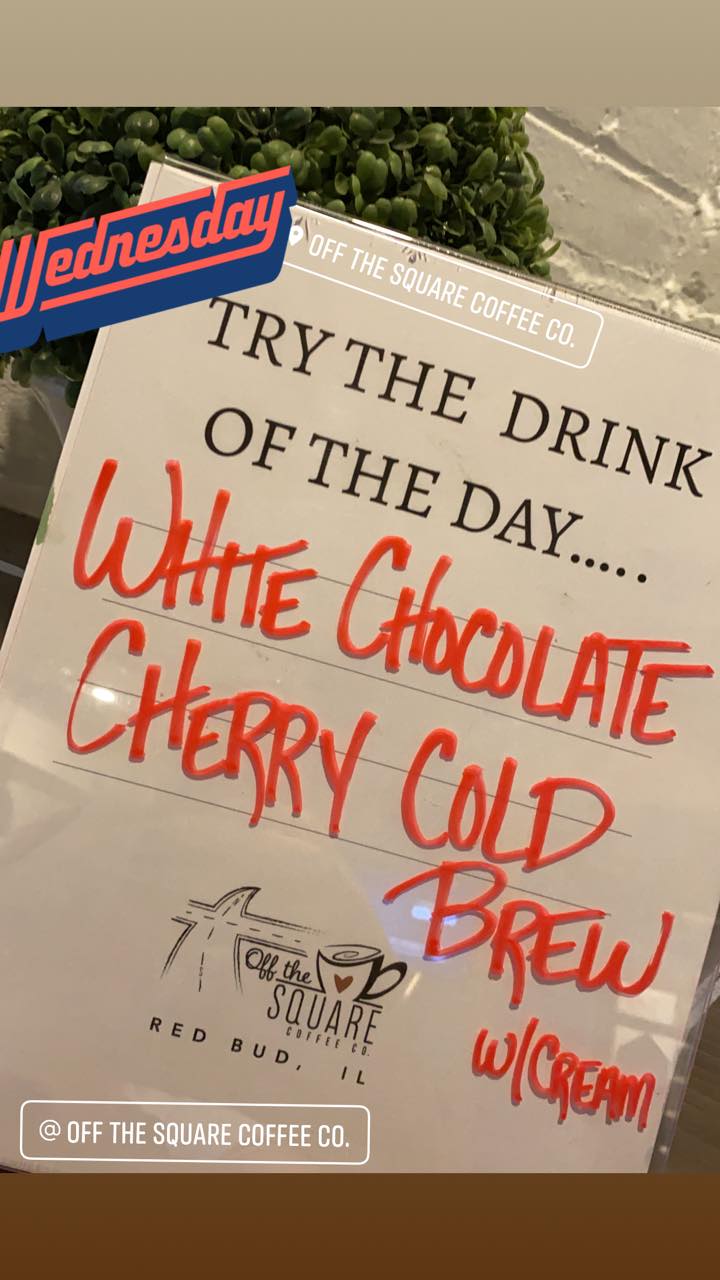 Wednesday
OFF THE SQUARE COFFEE CO.
TRY THE DRINK
OF THE DAY.....
WHITE CHOCOLATE
CHERRY COLD
BREW
W/CREAM
Off the
SQUARE
COFFEE CO.
RED BUD, IL
@ OFF THE SQUARE COFFEE CO.